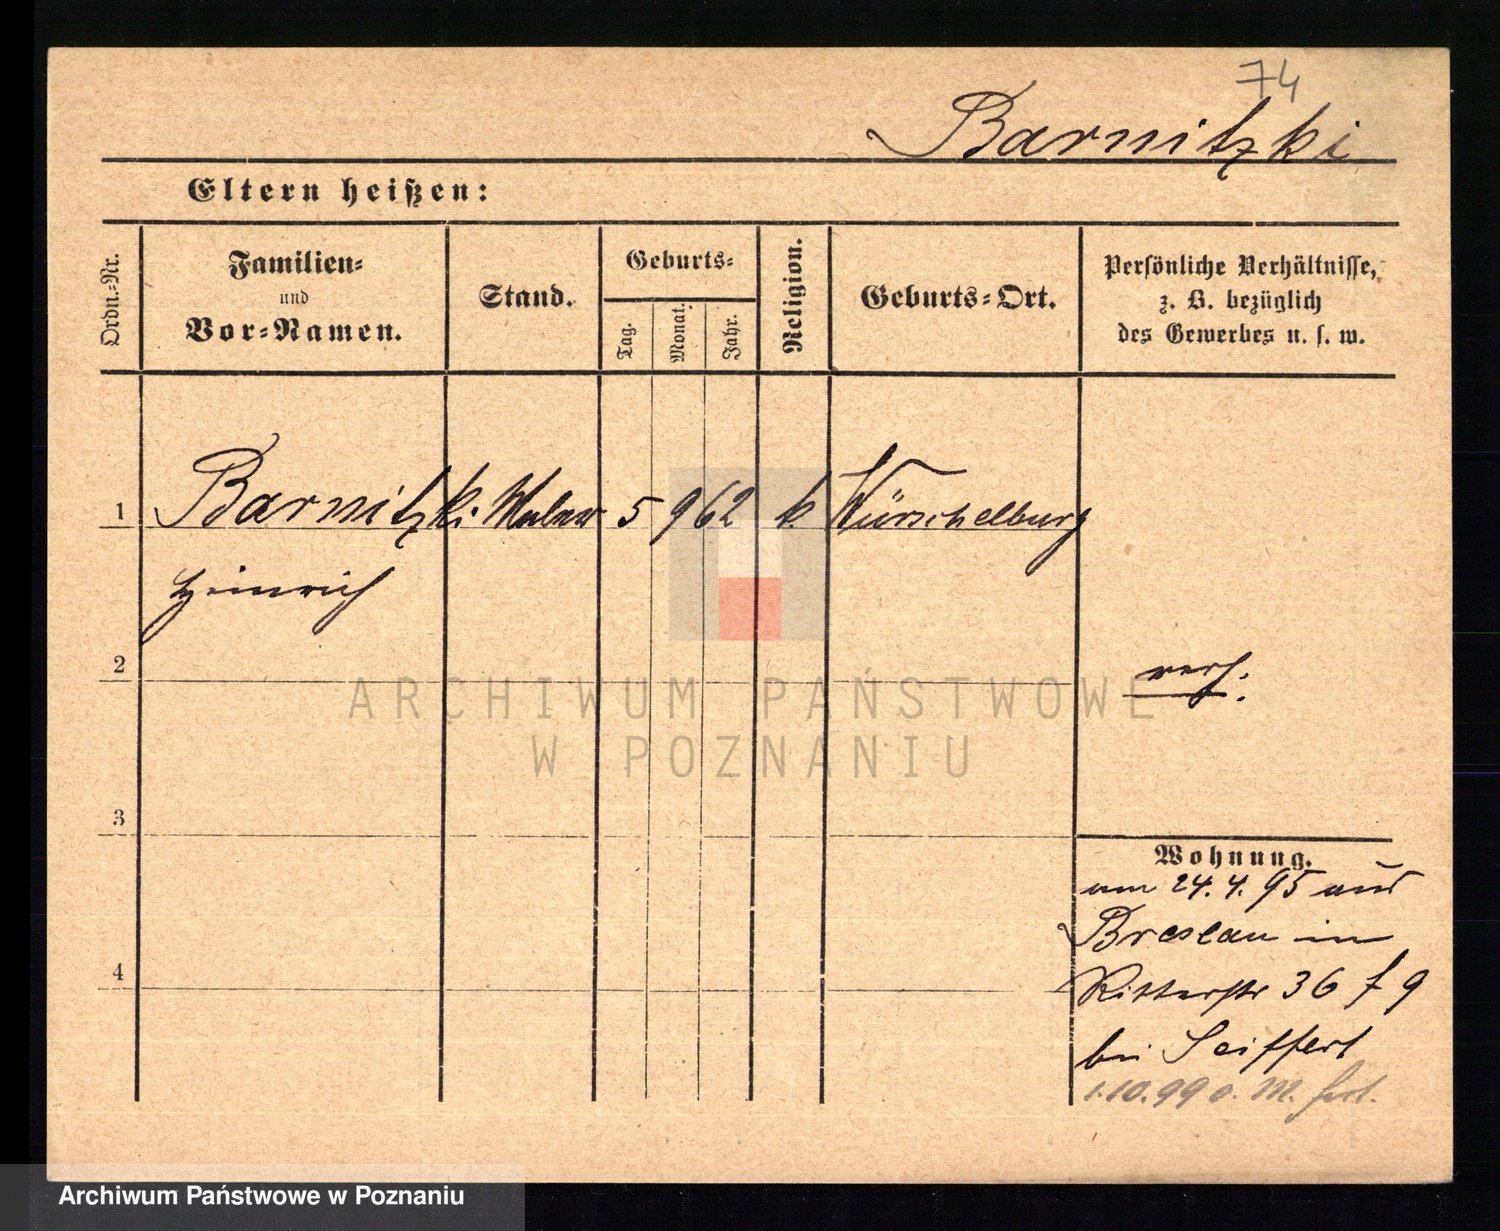 74
Barnitzki
Eltern heißen:
Ordn.-Nr.
Familien-
und
Vor-Namen.
Stand.
Geburts-
Tag.
Monat.
Jahr.
Religion.
Geburts-Ort.
Persönliche Verhältnisse,
z. B. bezüglich
des Gewerbes u. s. w.
1 Barnitzki Maler 5 9 62 k. Würschelburg
Heinrich
2
verh.
3
4
Wohnung.
am 24.4.95 aus
Breslau in
Ritterstr 36 f 9
bei Seiffert
1.10.99 o. M. fort.
ARCHIWUM PAŃSTWOWE
W POZNANIU
Archiwum Państwowe w Poznaniu